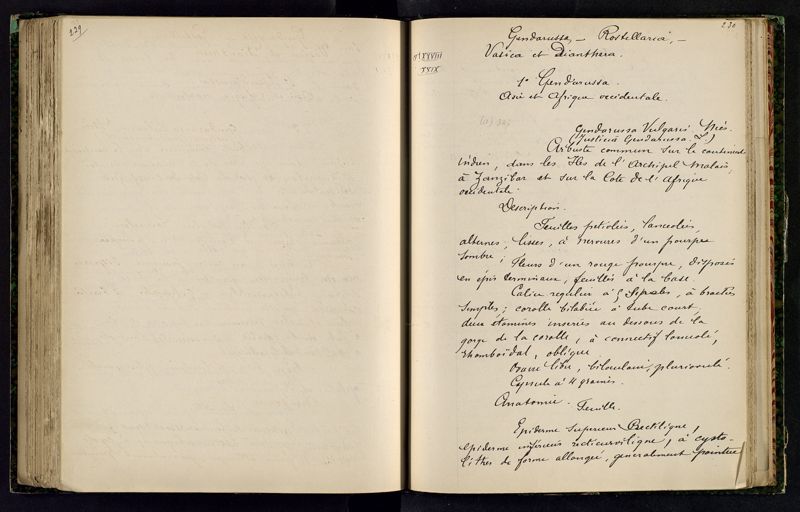 229
230
Gendarussa, — Rostellaria, —
Vasica et Dianthera.
Pl XXVIII
XXIX
1° Gendarussa.
Asie et Afrique occidentale.
Gendarussa Vulgaris Nées.
(Justicia Gendarussa. L)
Arbuste commun sur le continent
indien, dans les Iles de l'Archipel Malais,
à Zanzibar et sur la Cote de l'Afrique
occidentale.
Description.
Feuilles petiolées, lanceolées,
alternes, lisses, à nervures d'un pourpre
sombre; fleurs d'un rouge pourpre, disposées
en épis terminaux, feuillés à la base.
Calice regulier à 5 Sepales, à bractées
simples; corolle bilabiée à tube court,
deux étamines inserées au dessous de la
gorge de la corolle, à connectif lanceolé,
rhomboïdal, oblique.
Ovaire libre, biloculaire, pluriovulé.
Capsule à 4 graines.
Anatomie.
Feuille.
Epiderme superieur Rectiligne,
epiderme inférieur recticurviligne, à cysto-
lithes de forme allongée, généralement pointue